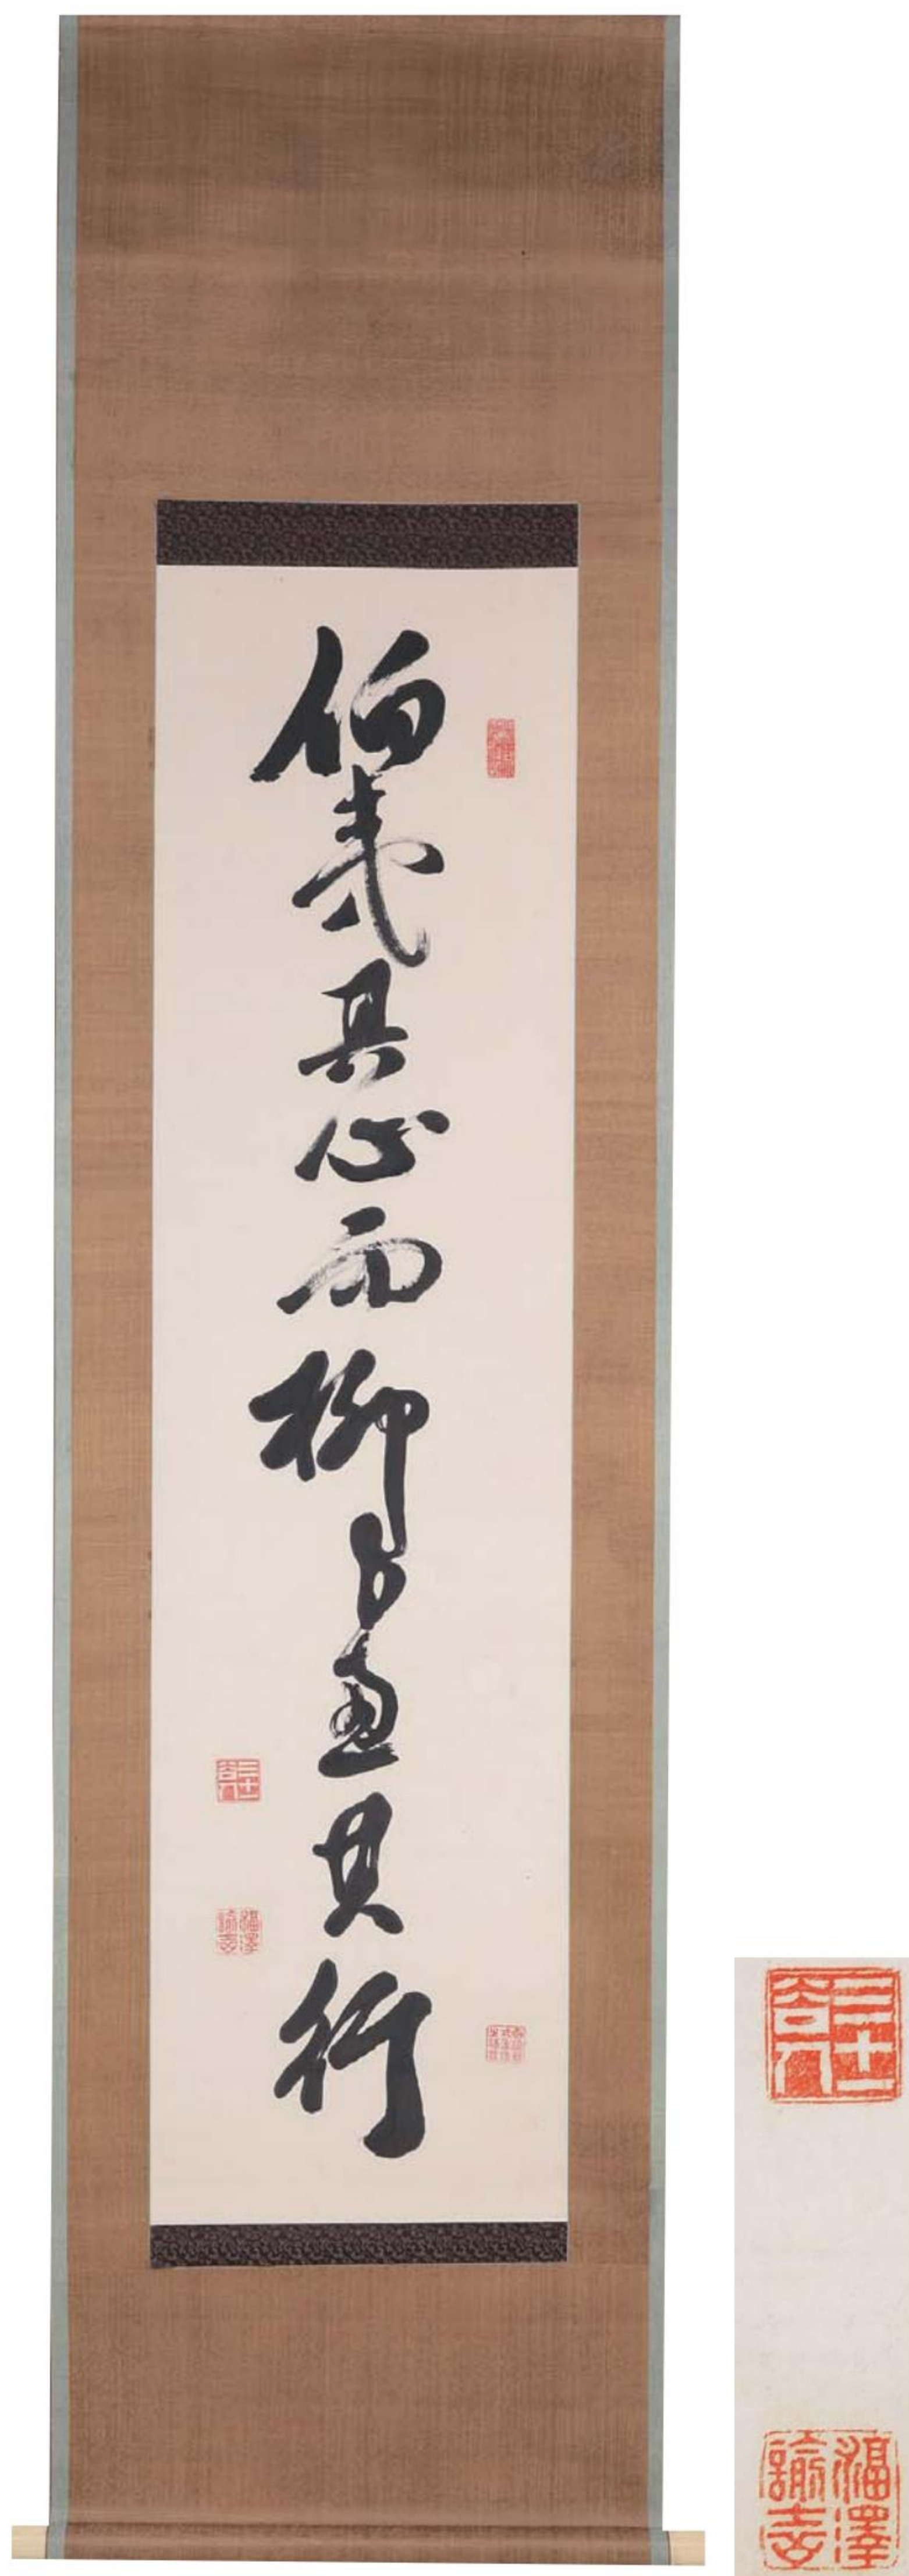 伯夷其心而柳下惠其行
三十一谷人
福澤諭吉